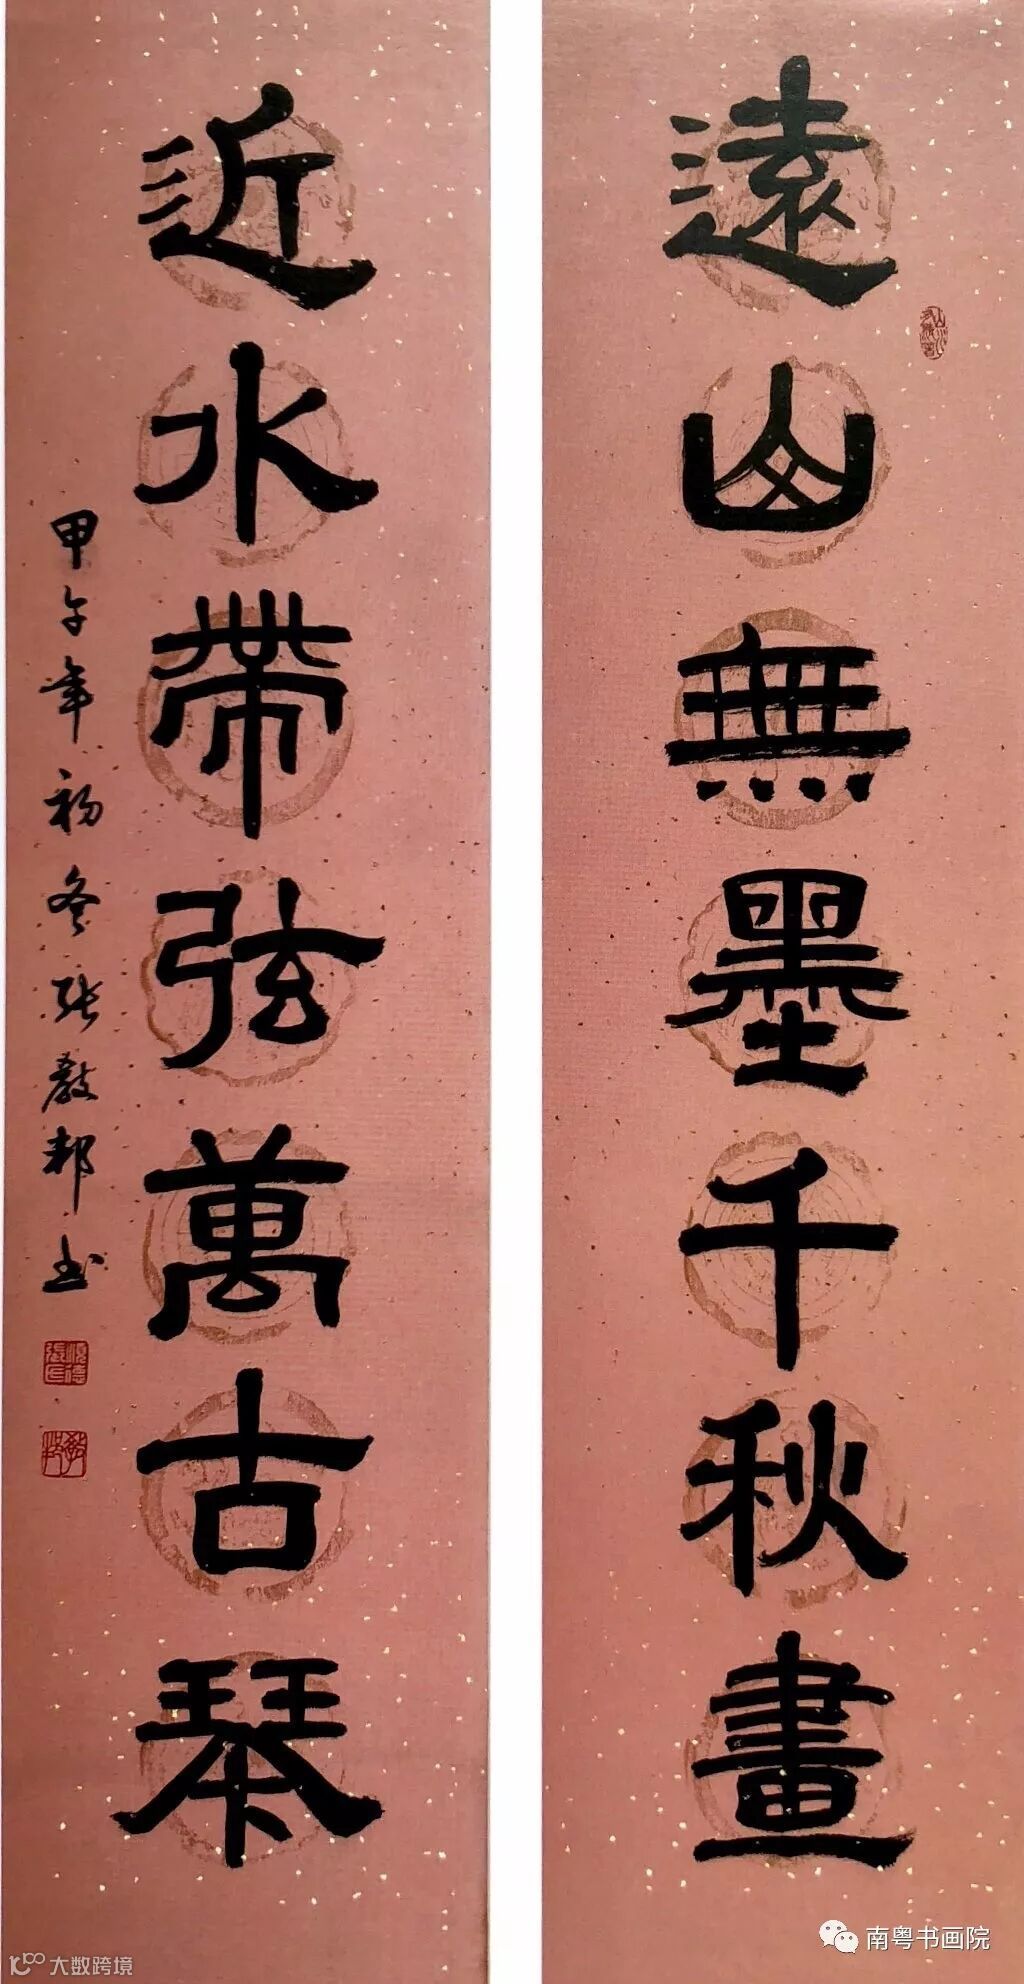 遠山無墨千秋畫
近水帶弦萬古琴
甲午年初冬張教邦书
南粤书画院
大数跨境